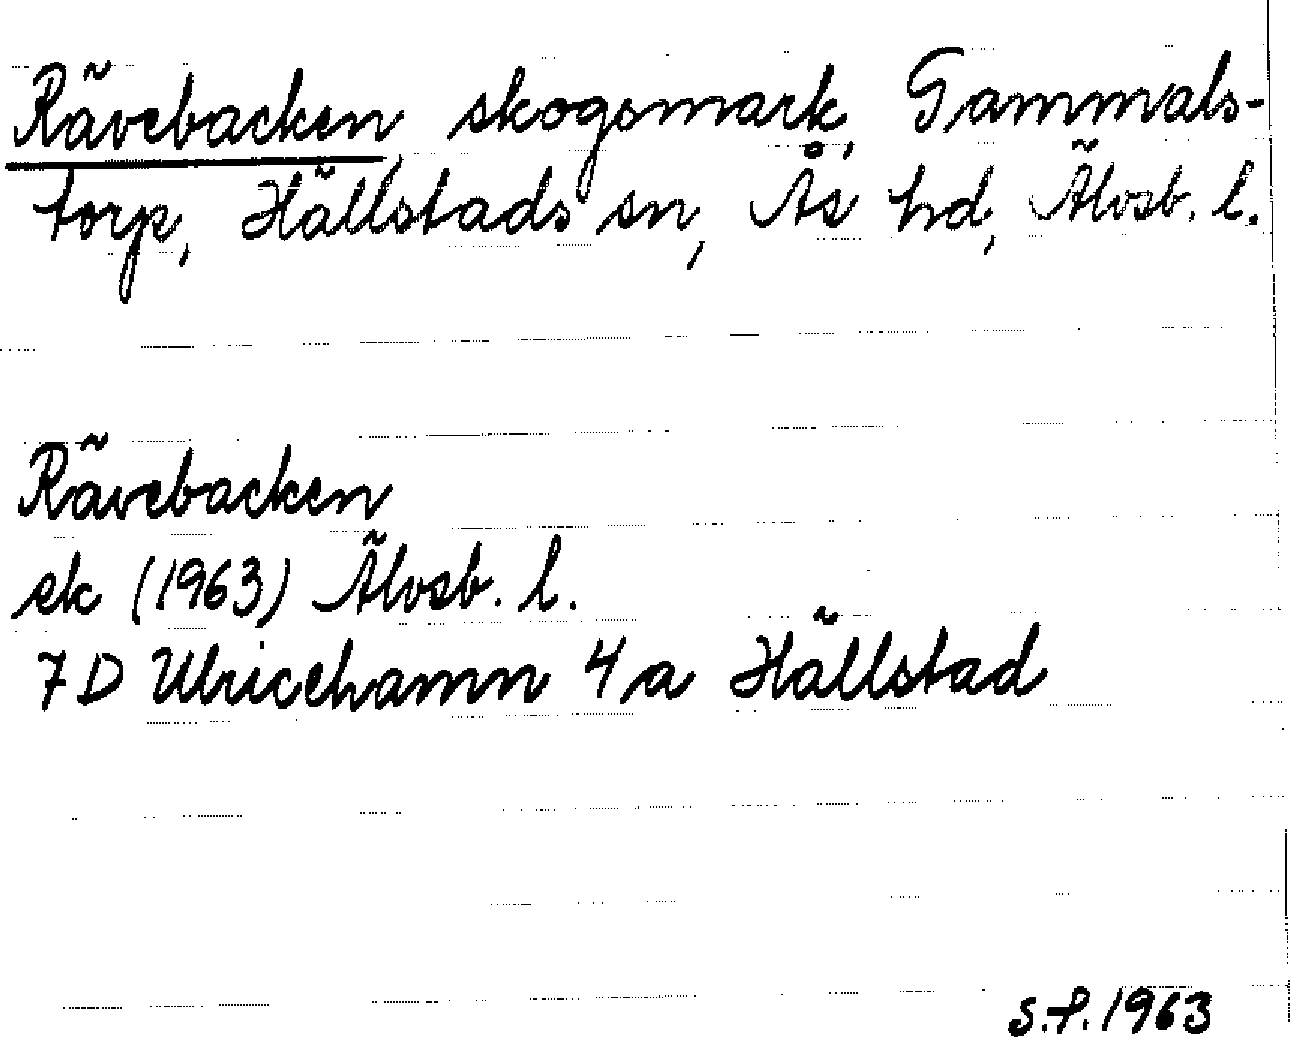 Rävebacken, skogsmark, Gammals-
torp, Hällstads sn, Ås hd, Älvsb. l.
Rävebacken
ek (1963) Älvsb. l.
7 D Ulricehamn 4 a Hällstad
S.P. 1963